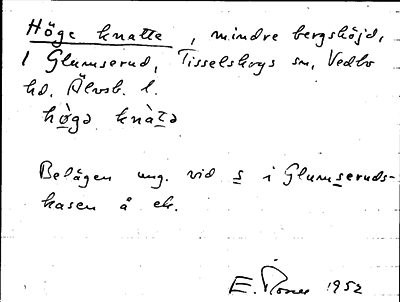 Höge knatte, mindre bergshöjd,
i Glumserud, Tisselskogs sn, Vedbo
hd, Älvsb. l.
hò̱gə knàt̲ə
Belägen ung. vid s i Glumseruds-
kasen å ek.
E. 1952